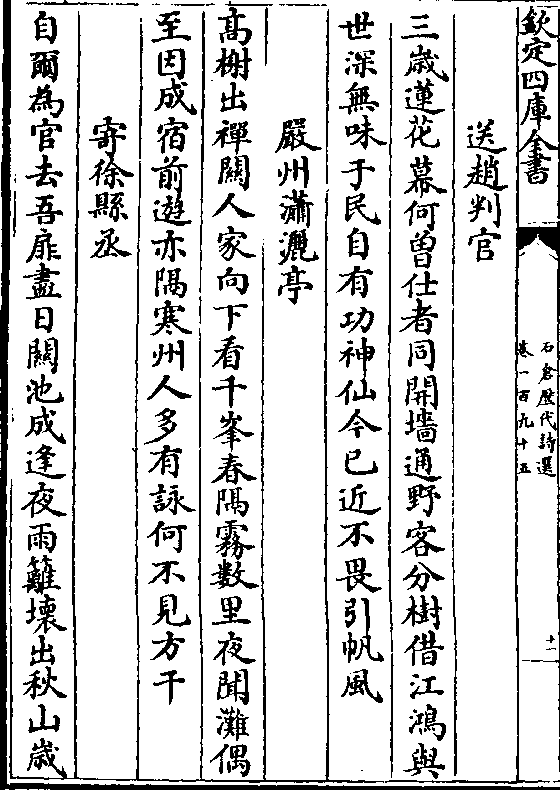 欽定四庫全書
石倉歷代詩選
卷一百九十五
十一
送趙判官
三歳蓮花幕何曾仕者同開墻通野客分樹借江鴻與
世深無味于民自有功神仙今已近不畏引帆風
嚴州瀟灑亭
髙榭出禪關人家向下看千峯春隔霧數里夜聞灘偶
至因成宿前遊亦隔寒州人多有詠何不見方干
寄徐縣丞
自爾為官去吾扉盡日關池成逢夜雨籬壊出秋山歳